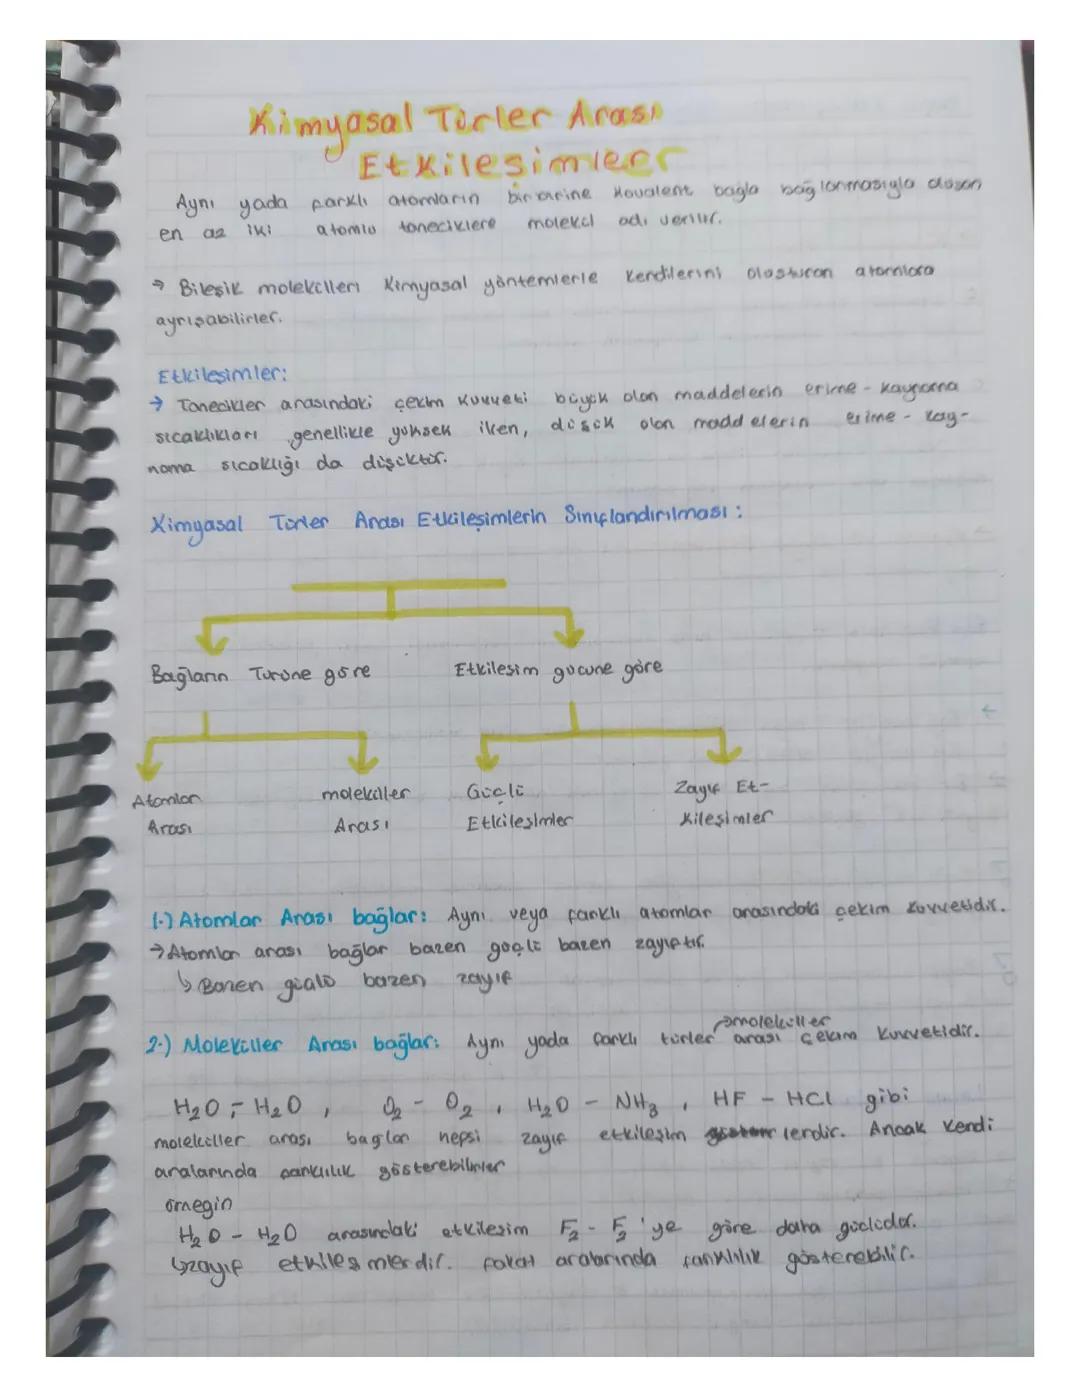 Kimyasal Türler Arası
Etkileşimler
Aynı yada farklı atomların birbirine kovalent bağla bağlanmasıyla oluşan
en az iki atomlu taneciklere molekül adı verilir.
→ Bileşik molekülleri kimyasal yöntemlerle kendilerini oluşturan atomlara
ayrışabilirler.
Etkileşimler:
→ Tanecikler arasındaki çekim kuvveti büyük olan maddelerin erime - kaynama
sıcaklıkları genellikle yüksek iken, düşük olan maddelerin erime - kay-
nama sıcaklığı da düşüktür.
Kimyasal Türler Arası Etkileşimlerin Sınıflandırılması:
Bağların Türüne göre Etkileşim gücüne göre
Atomlar moleküller Güçlü Zayıf Et-
Arası Arası Etkileşimler kileşimler
1.) Atomlar Arası bağlar: Aynı veya farklı atomlar arasındaki çekim kuvvetidir.
→ Atomlar arası bağlar bazen güçlü bazen zayıftır.
↳ Bazen güçlü bazen zayıf
→moleküller
2.) Moleküller Arası bağlar: Aynı yada farklı türler arası çekim kuvvetidir.
H₂O - H₂O , O₂ - O₂ , H₂O - NH₃ , HF - HCl gibi
moleküller arası bağlar hepsi zayıf etkileşim lerdir. Ancak kendi
aralarında farklılık gösterebilirler
örneğin
H₂O - H₂O arasındaki etkileşim F₂ - F₂ 'ye göre daha güçlüdür.
↳zayıf etkileşimlerdir. fakat aralarında farklılık gösterebilir.